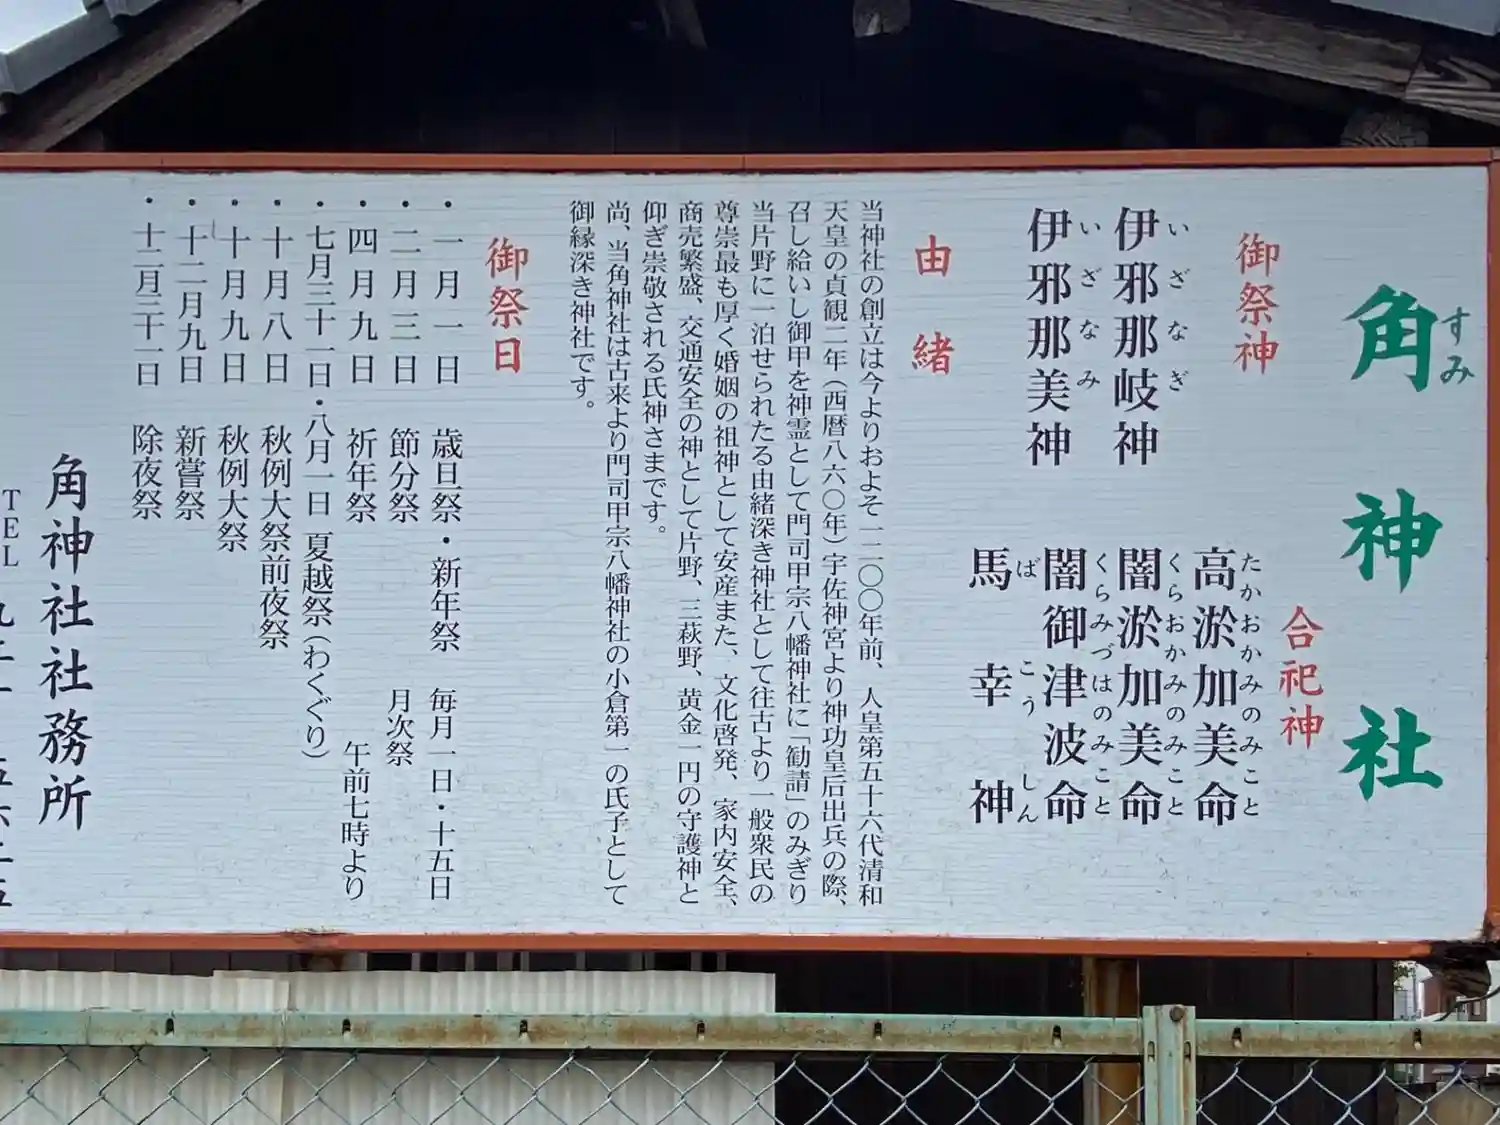 角神社
すみ
御祭神
伊邪那岐神
いざなぎ
伊邪那美神
いざなみ
合祀神
高淤加美命
たかおかみのみこと
闇淤加美命
くらおかみのみこと
闇御津波命
くらみづはのみこと
馬幸神
ばこうしん
由緒
当神社の創立は今よりおよそ一二〇〇年前、人皇第五十六代清和
天皇の貞観二年(西暦八六〇年)宇佐神宮より神功皇后出兵の際、
召し給いし御甲を神霊として門司甲宗八幡神社に「勧請」のみぎり
当片野に一泊せられたる由緒深き神社として往古より一般衆民の
尊崇最も厚く婚姻の祖神として安産また、文化啓発、家内安全、
商売繁盛、交通安全の神として片野、三萩野、黄金一円の守護神と
仰ぎ崇敬される氏神さまです。
尚、当角神社は古来より門司甲宗八幡神社の小倉第一の氏子として
御縁深き神社です。
御祭日
・一月一日 歳旦祭・新年祭 毎月一日・十五日
・二月三日 節分祭 月次祭
・四月九日 祈年祭 午前七時より
・七月三十一日・八月一日 夏越祭(わくぐり)
・十月八日 秋例大祭前夜祭
・十月九日 秋例大祭
・十二月九日 新嘗祭
・十二月三十一日 除夜祭
角神社社務所
TEL